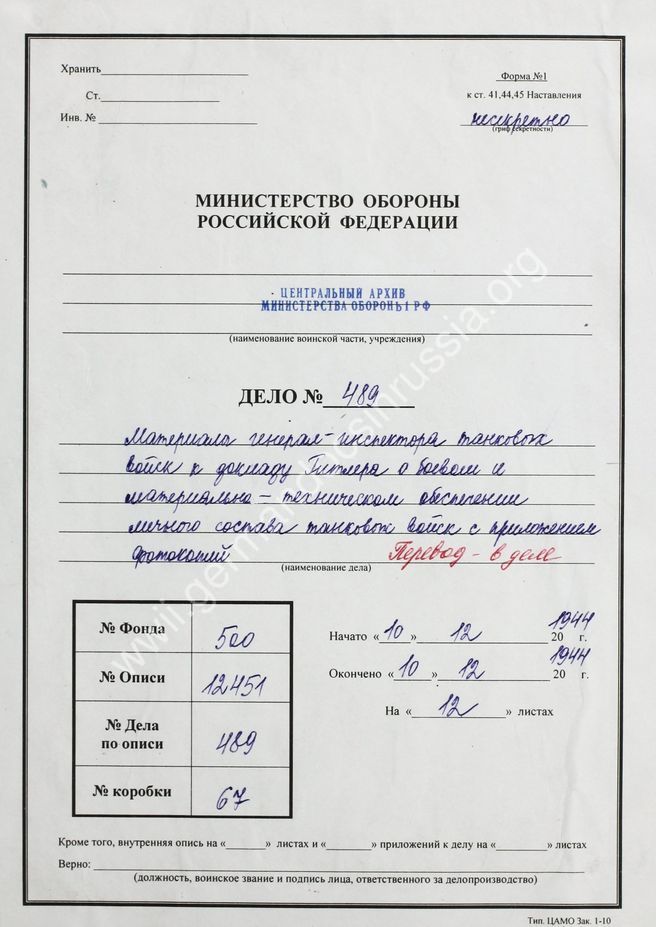 Хранить
Форма №1
Ст.
к ст. 41,44,45 Наставления
Инв. №
несекретно
(гриф секретности)
МИНИСТЕРСТВО ОБОРОНЫ
РОССИЙСКОЙ ФЕДЕРАЦИИ
ЦЕНТРАЛЬНЫЙ АРХИВ
МИНИСТЕРСТВА ОБОРОНЫ РФ
(наименование воинской части, учреждения)
ДЕЛО № 489
Материалы генерал-инспектора танковых
войск к докладу Гитлера о боевом и
материально-техническом обеспечении
личного состава танковых войск с приложением
фотокопий Перевод - в деле
(наименование дела)
№ Фонда 500
№ Описи 12451
№ Дела
по описи 489
№ коробки 67
Начато «10» 12 20 1944 г.
Окончено «10» 12 20 1944 г.
На « 12 » листах
Кроме того, внутренняя опись на «______» листах и «________» приложений к делу на «________» листах
Верно:
(должность, воинское звание и подпись лица, ответственного за делопроизводство)
Тип. ЦАМО Зак. 1-10
wwii.germandocsinrussia.org